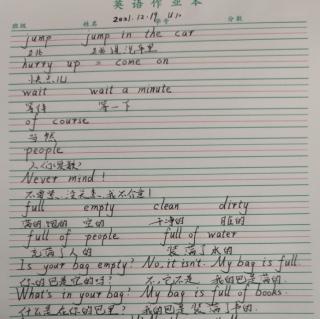 英语作业本
班级 姓名 学号 分数
2021.12.17 U10
jump jump in the car
hurry up = come on
快点儿
wait wait a minute
等待 等一下
of course
当然
people
Never mind!
不要紧、没关系、我不介意!
full empty clean dirty
空的 干净的 脏的
full of people full of water
充满了人的 装满了水的
Is your bag empty? No, it isn't. My bag is full.
你的包是空的吗? 不,它不是 我的包是满的.
What's in your bag? My bag is full of books.
什么是在你的包里? 我的包是装满了书的.